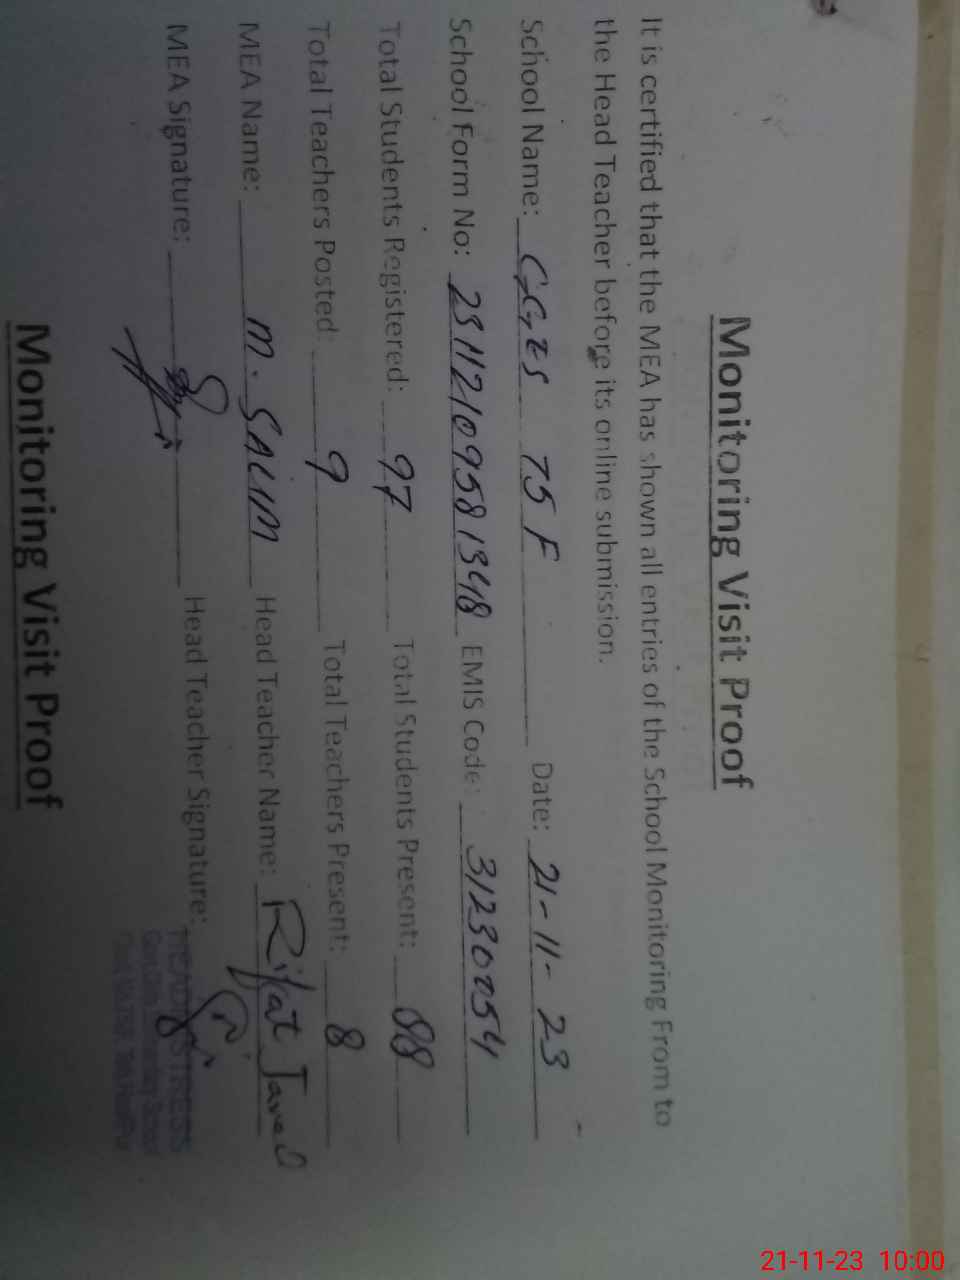 Monitoring Visit Proof
It is certified that the MEA has shown all entries of the School Monitoring From to
the Head Teacher before its online submission.
School Name: GGES 75 F Date: 21-11-23
School Form No: 23112109581348 EMIS Code: 31230054
Total Students Registered: 97 Total Students Present: 88
Total Teachers Posted: 9 Total Teachers Present: 8
MEA Name: M. SALIM Head Teacher Name: Rifat Javed
MEA Signature: Head Teacher Signature:
HEADMISTRESS
School
Monitoring Visit Proof
21-11-23 10:00